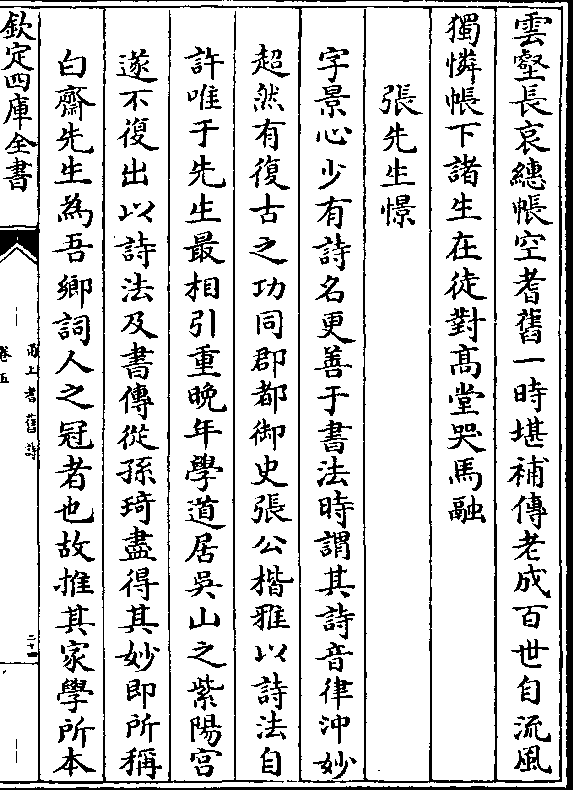 雲壑長哀繐帳空耆舊一時堪補傳老成百世自流風
獨憐帳下諸生在徒對髙堂哭馬融
張先生憬
字景心少有詩名更善于書法時謂其詩音律沖妙
超然有復古之功同郡都御史張公楷雅以詩法自
許唯于先生最相引重晚年學道居吳山之紫陽宫
遂不復出以詩法及書傳從孫琦盡得其妙即所稱
白齋先生為吾鄉詞人之冠者也故推其家學所本
欽定四庫全書
卷五